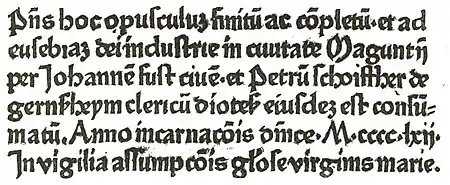 Pñs hoc opusculuz finitũ ac cõpletũ. et ad
eusebiaz dei industrie in ciuitate Maguntij
per Johannẽ fust ciuẽ. et Petrũ schoiffher de
gernßheym clericũ dioteß eiusdez est consũ-
matũ. Anno incarnacõis dñice. M.cccc.lxij.
In vigilia assumpcõis glose virginis marie.